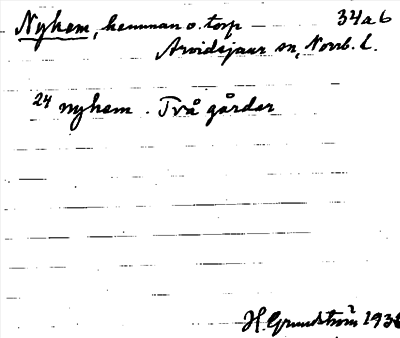 Nyhem, hemman o. torp 34ab
Arvidsjaur sn, Norrb. l.
24 nyhem. Två gårder
H. Grundström 193